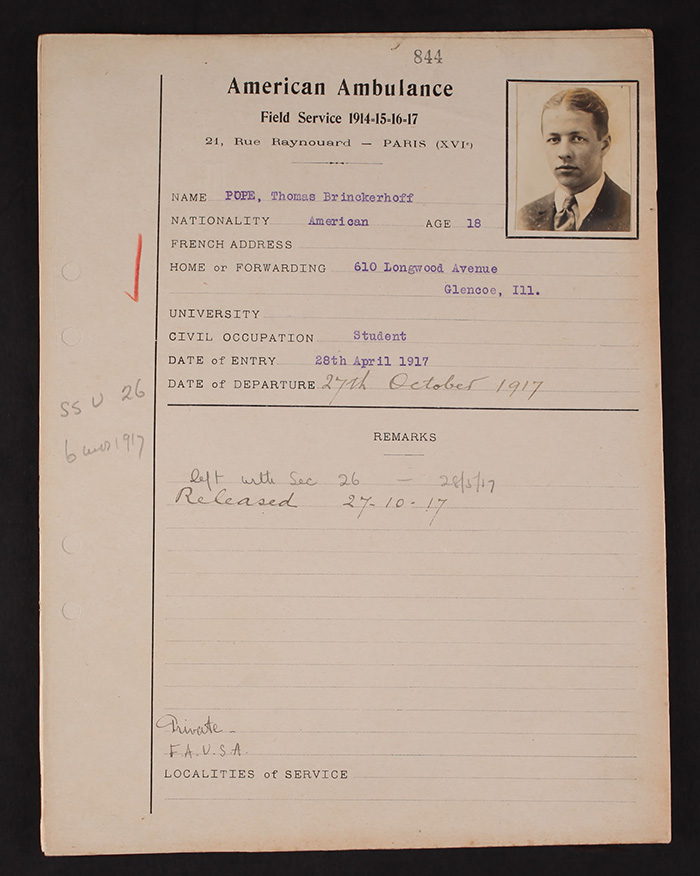 844
American Ambulance
Field Service 1914-15-16-17
21, Rue Raynouard — PARIS (XVIe)
NAME POPE, Thomas Brinckerhoff
NATIONALITY American AGE 18
FRENCH ADDRESS
HOME or FORWARDING 610 Longwood Avenue
Glencoe, Ill.
UNIVERSITY
CIVIL OCCUPATION Student
DATE of ENTRY 28th April 1917
DATE of DEPARTURE 27th October 1917
SSU 26
6 mos 1917
REMARKS
left with Sec 26 — 28/5/17
Released 27-10-17
Private
F.A.U.S.A.
LOCALITIES of SERVICE